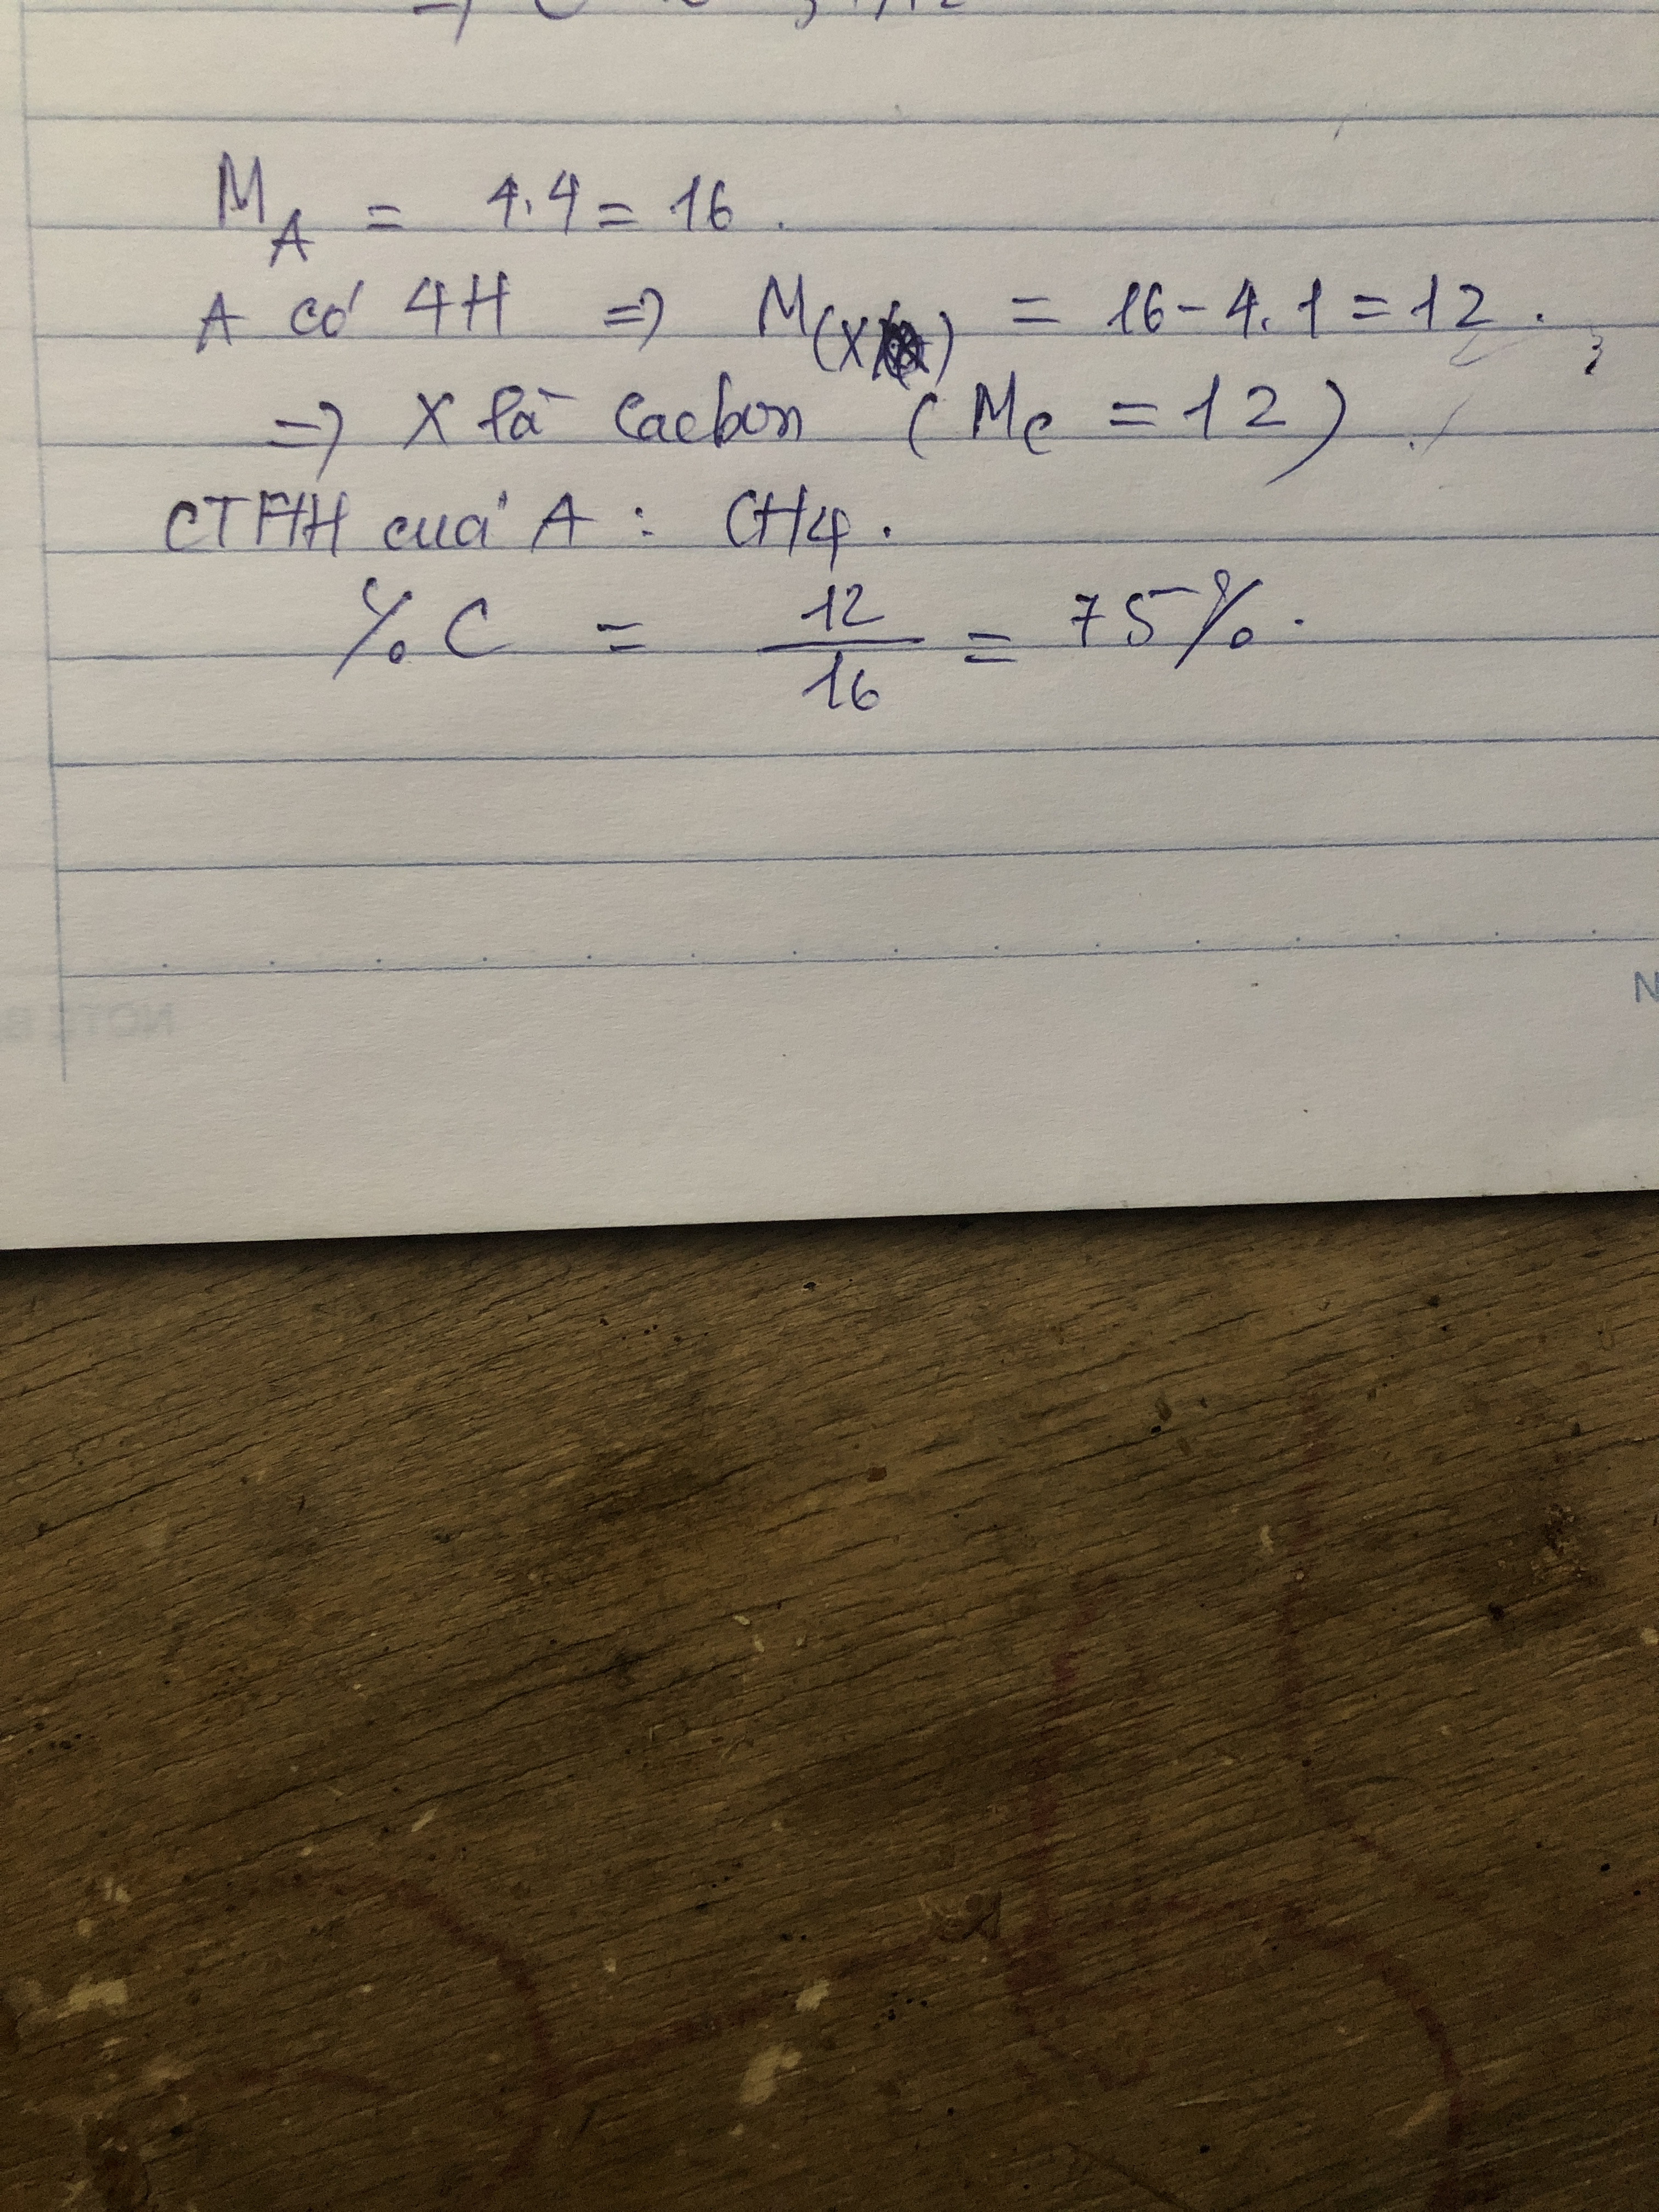 M_A = 4.4 = 16 .
A có 4H => M(X) = 16 - 4.1 = 12 .
=> X là cacbon ( Mc = 12 )
CTHH của A : CH4 .
% C = 12/16 = 75% .
NOTE B
N